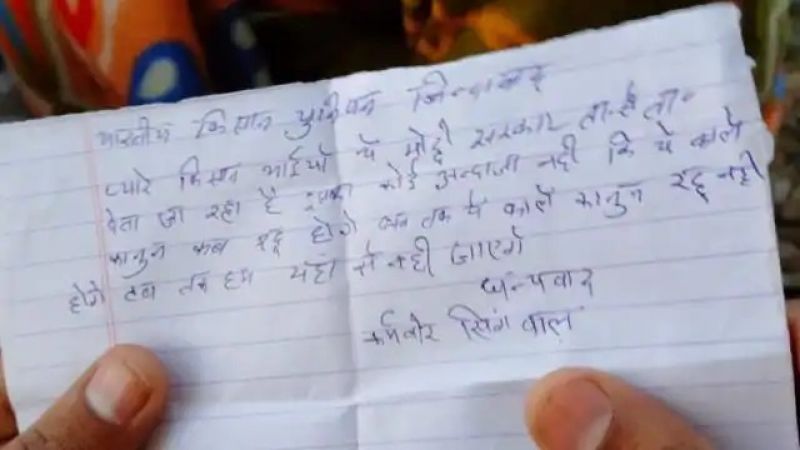 भारतीय किसान युनियन जिन्दाबाद
प्यारे किसान भाईयों ये मोदी सरकार तारीख ता-
देता जा रहा है इसका कोई अन्दाजा नही कि ये काले
कानुन कब रद्द होगे जब तक ये काले कानुन रद्द नही
होगे तब तक हम यहाँ से नही जाएगें
धन्यवाद
कर्मवीर सिंग वाल